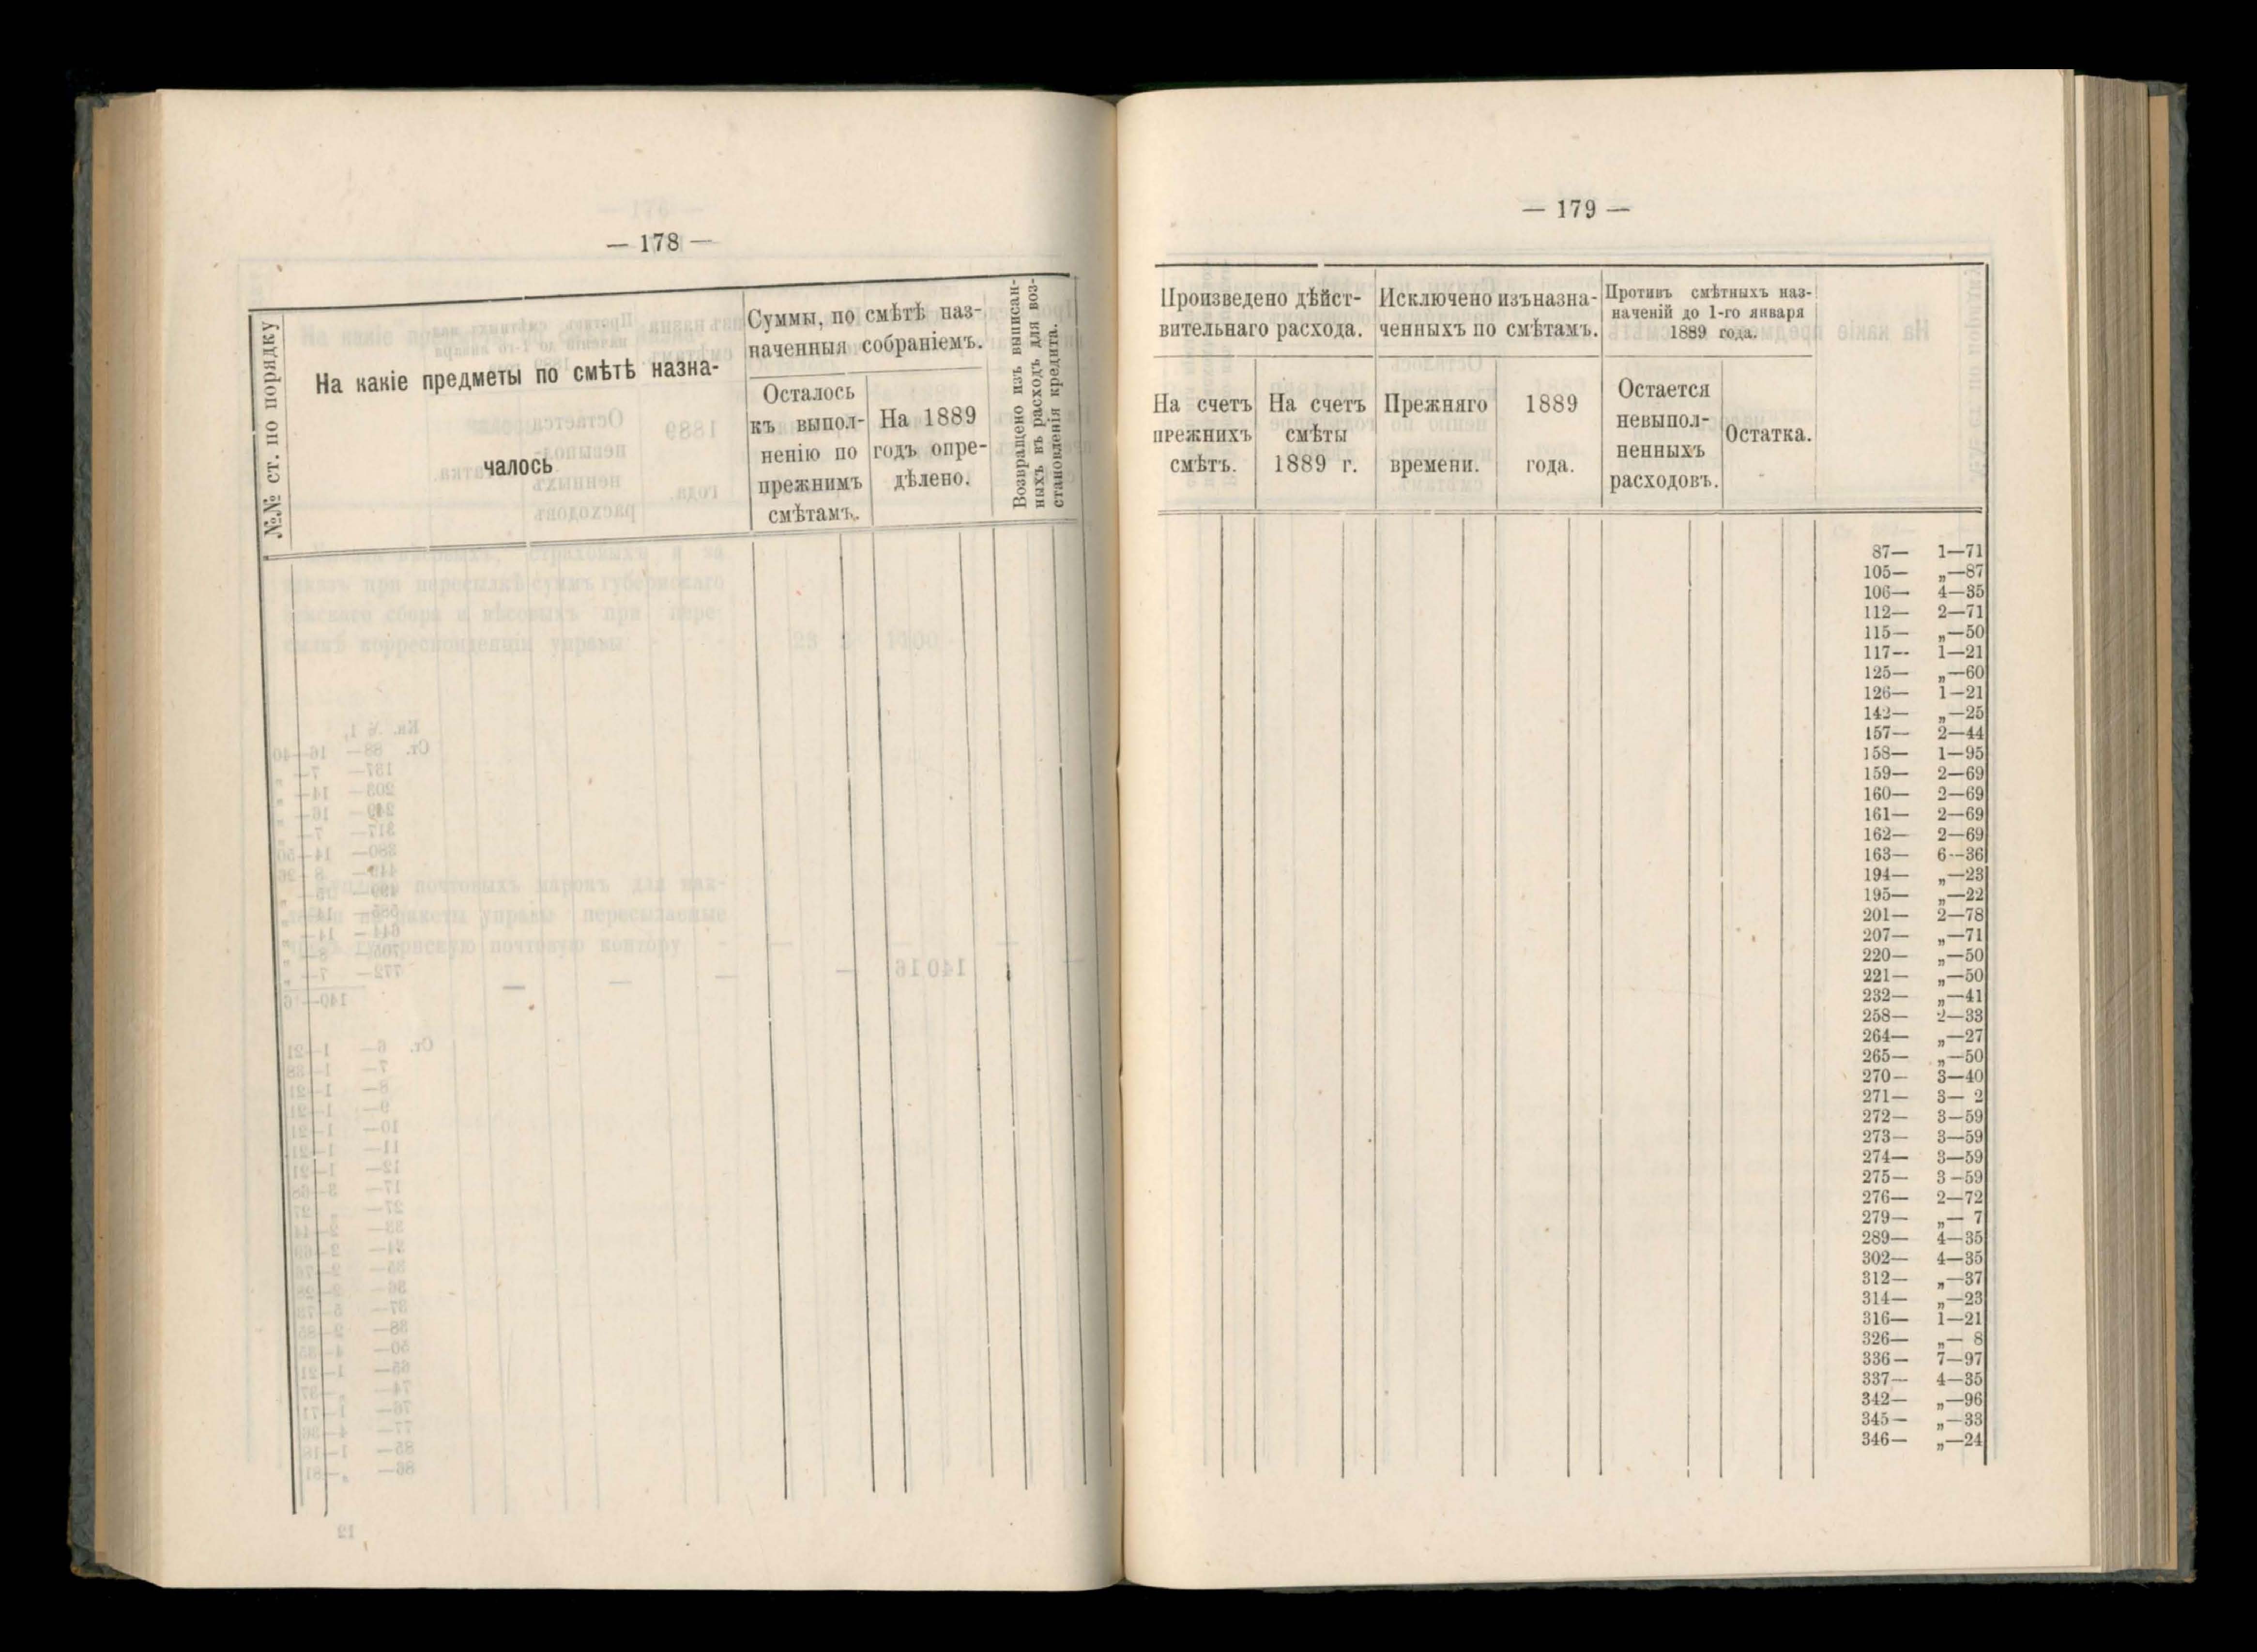 — 178 —
№№ ст. по порядку
На какіе предметы по смѣтѣ назна-
чалось
Суммы, по смѣтѣ наз-
наченныя собраніемъ.
Осталось
къ выпол-
ненію по
прежнимъ
смѣтамъ.
На 1889
годъ опре-
дѣлено.
Возвращено изъ выписан-
ныхъ въ расходъ для воз-
становленія кредита.
— 179 —
Произведено дѣйст-
вительнаго расхода.
На счетъ
прежнихъ
смѣтъ.
На счетъ
смѣты
1889 г.
Исключено изъ назна-
ченныхъ по смѣтамъ.
Прежняго
времени.
1889
года.
Противъ смѣтныхъ наз-
наченій до 1-го января
1889 года.
Остается
невыпол-
ненныхъ
расходовъ.
Остатка.
87— 1—71
105— „—87
106— 4—35
112— 2—71
115— „—50
117— 1—21
125— „—60
126— 1—21
142— „—25
157— 2—44
158— 1—95
159— 2—69
160— 2—69
161— 2—69
162— 2—69
163— 6—36
194— „—23
195— „—22
201— 2—78
207— „—71
220— „—50
221— „—50
232— „—41
258— 2—33
264— „—27
265— „—50
270— 3—40
271— 3— 2
272— 3—59
273— 3—59
274— 3—59
275— 3—59
276— 2—72
279— „— 7
289— 4—35
302— 4—35
312— „—37
314— „—23
316— 1—21
326— „— 8
336— 7—97
337— 4—35
342— „—96
345— „—33
346— „—24